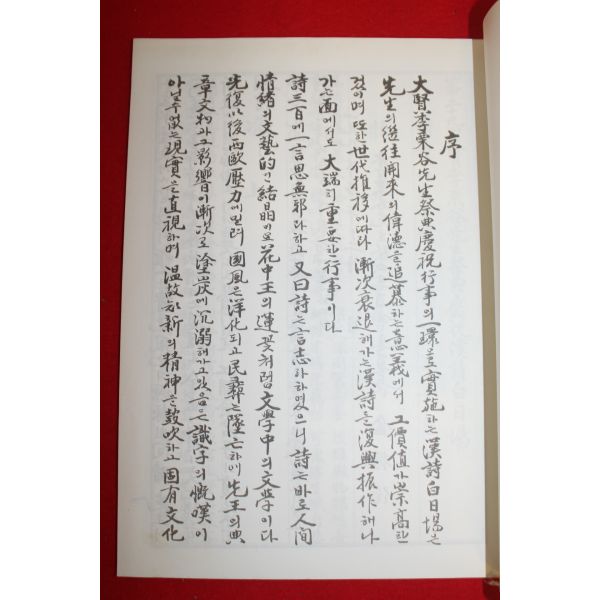 序
大賢李栗谷先生祭典慶祝行事의 一環으로 實施하는 漢詩白日場은
先生의 繼往開來의 偉德을 追慕하는 意義에서 그 價値가 崇高한
것이며 또한 世代推移에 따라 漸次 衰退해가는 漢詩를 復興振作해나
가는 面에서도 大端히 重要한 行事이다
詩三百에 一言思無邪라하고 又曰 詩는 言志라 하였으니 詩는 바로 人間
情緖의 文藝的인 結晶이요 花中王의 蓮꽃처럼 文學中의 文學이다
光復以後 西歐壓力에 밀려 國風은 洋化되고 民彛는 墜亡하야 先王의 典
章文物과 그 影響이 漸次로 塗炭에 沉溺해가고 있음은 識字의 慨嘆이
아닐수없는 現實을 直視하며 溫故知新의 精神을 鼓吹하고 固有文化